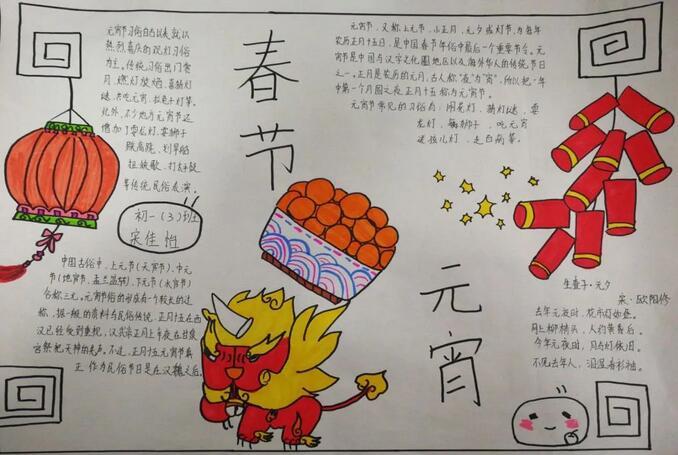 春节
元宵
元宵节习俗自古以来就以
热烈喜庆的观灯习俗
为主。传统习俗出门赏
月、燃灯放焰、喜猜灯
谜、共吃元宵、拉兔子灯等。
此外，不少地方元宵节还
增加了耍龙灯、耍狮子
踩高跷、划旱船
扭秧歌、打太平鼓
等传统民俗表演。
初一(3)班
宋佳怡
中国古俗中，上元节(天官节)、中元
节(地官节、盂兰盆节)、下元节(水官节)
合称三元。元宵节俗的形成有一个较长的过
程，据一般的资料与民俗传说，正月十五在西
汉已经受到重视，汉武帝正月上辛夜在甘泉
宫祭祀
正作为民俗节日是在汉魏之后。
元宵节，又称上元节、小正月、元夕或灯节，为每年
农历正月十五日，是中国春节年俗中最后一个重要节令。元
宵节是中国与汉字文化圈地区以及海外华人的传统节日
之一。正月是农历的元月，古人称"夜"为"宵"，所以把一年
中第一个月圆之夜正月十五称为元宵节。
元宵节常见的习俗有：闹花灯、猜灯谜、耍
龙灯、舞狮子、吃元宵
迎孩儿灯、走百病等。
生查子·元夕
宋·欧阳修
去年元夜时，花市灯如昼。
月上柳梢头，人约黄昏后。
今年元夜时，月与灯依旧。
不见去年人，泪湿春衫袖。